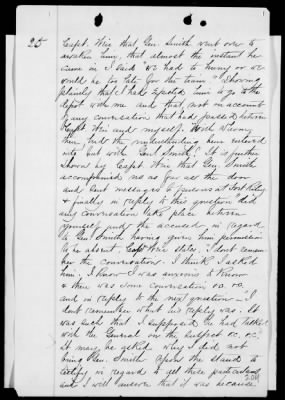 25
Capt. Weir that Gen. Smith went over to
awaken him, that almost the instant he
came in I said "we had to hurry or we
would be too late for the train" showing
plainly that I had expected him to go to the
depot with me and that, not on account
of any conversation that had passed between
Capt Weir and myself. With whom,
then, had the understanding been entered
into but with Gen Smith? It is further
shown by Capt Weir that Gen. Smith
accompanied me as far as the door
and sent messages to friends at Fort Riley
& finally in reply to this question "did
any conversation take place between
yourself and the accused in regard
to Gen Smith having given him permission
to be absent" Capt Weir states. I dont remem
ber the conversation. I think I asked
him. I know I was anxious to know
& there was some conversation &c. &c.
and in reply to the next question - I
dont remember what his reply was. It
was such that I supposed he had talked
with the General on the subject &c. &c.
It may be asked why I did not
bring Gen. Smith upon the stand to
testify in regard to these particulars
and I will answer that it was because